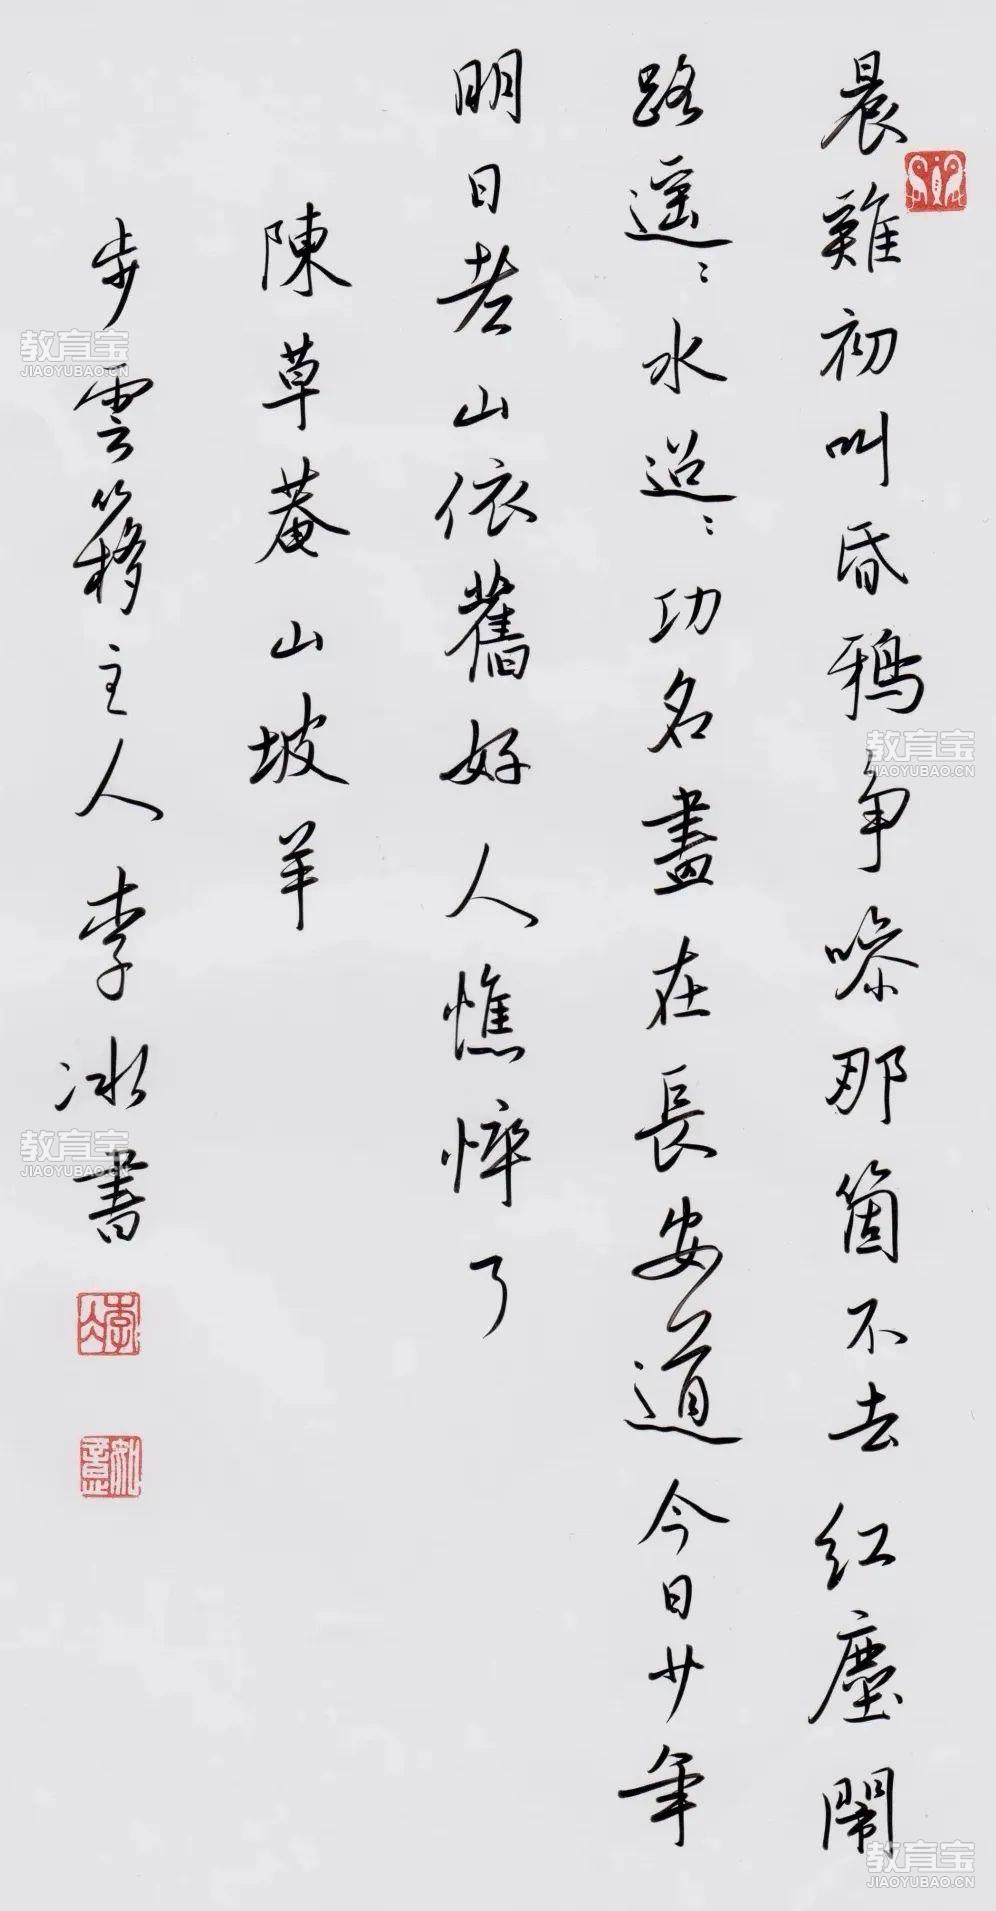 晨雞初叫昏鴉争噪那箇不去红塵鬧
路遥〻水迢〻功名盡在長安道今日少年
明日老山依舊好人憔悴了
陳草菴山坡羊
步雲簃主人李冰書
教育宝
JIAOYUBAO.CN
教育宝
JIAOYUBAO.CN
教育宝
JIAOYUBAO.CN
教育宝
JIAOYUBAO.CN